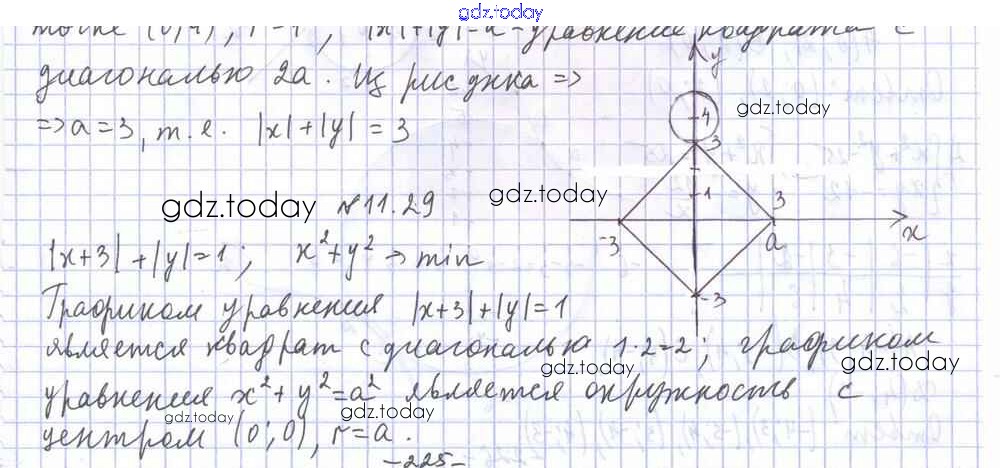 gdz.today
точке (0;4), r=1, |x|+|y|=a-уравнение квадрата с
диагональю 2a. Из рисунка =>
=> a=3, т.е. |x|+|y|=3
y
gdz.today
4
3
1
-3
3
a
x
-3
gdz.today №11.29 gdz.today
|x+3|+|y|=1; x²+y² → min
Графиком уравнения |x+3|+|y|=1
является квадрат с диагональю 1·2=2; графиком
gdz.today gdz.today
уравнения x²+y²=a² является окружность с
gdz.today gdz.today
центром (0;0), r=a.
-225-